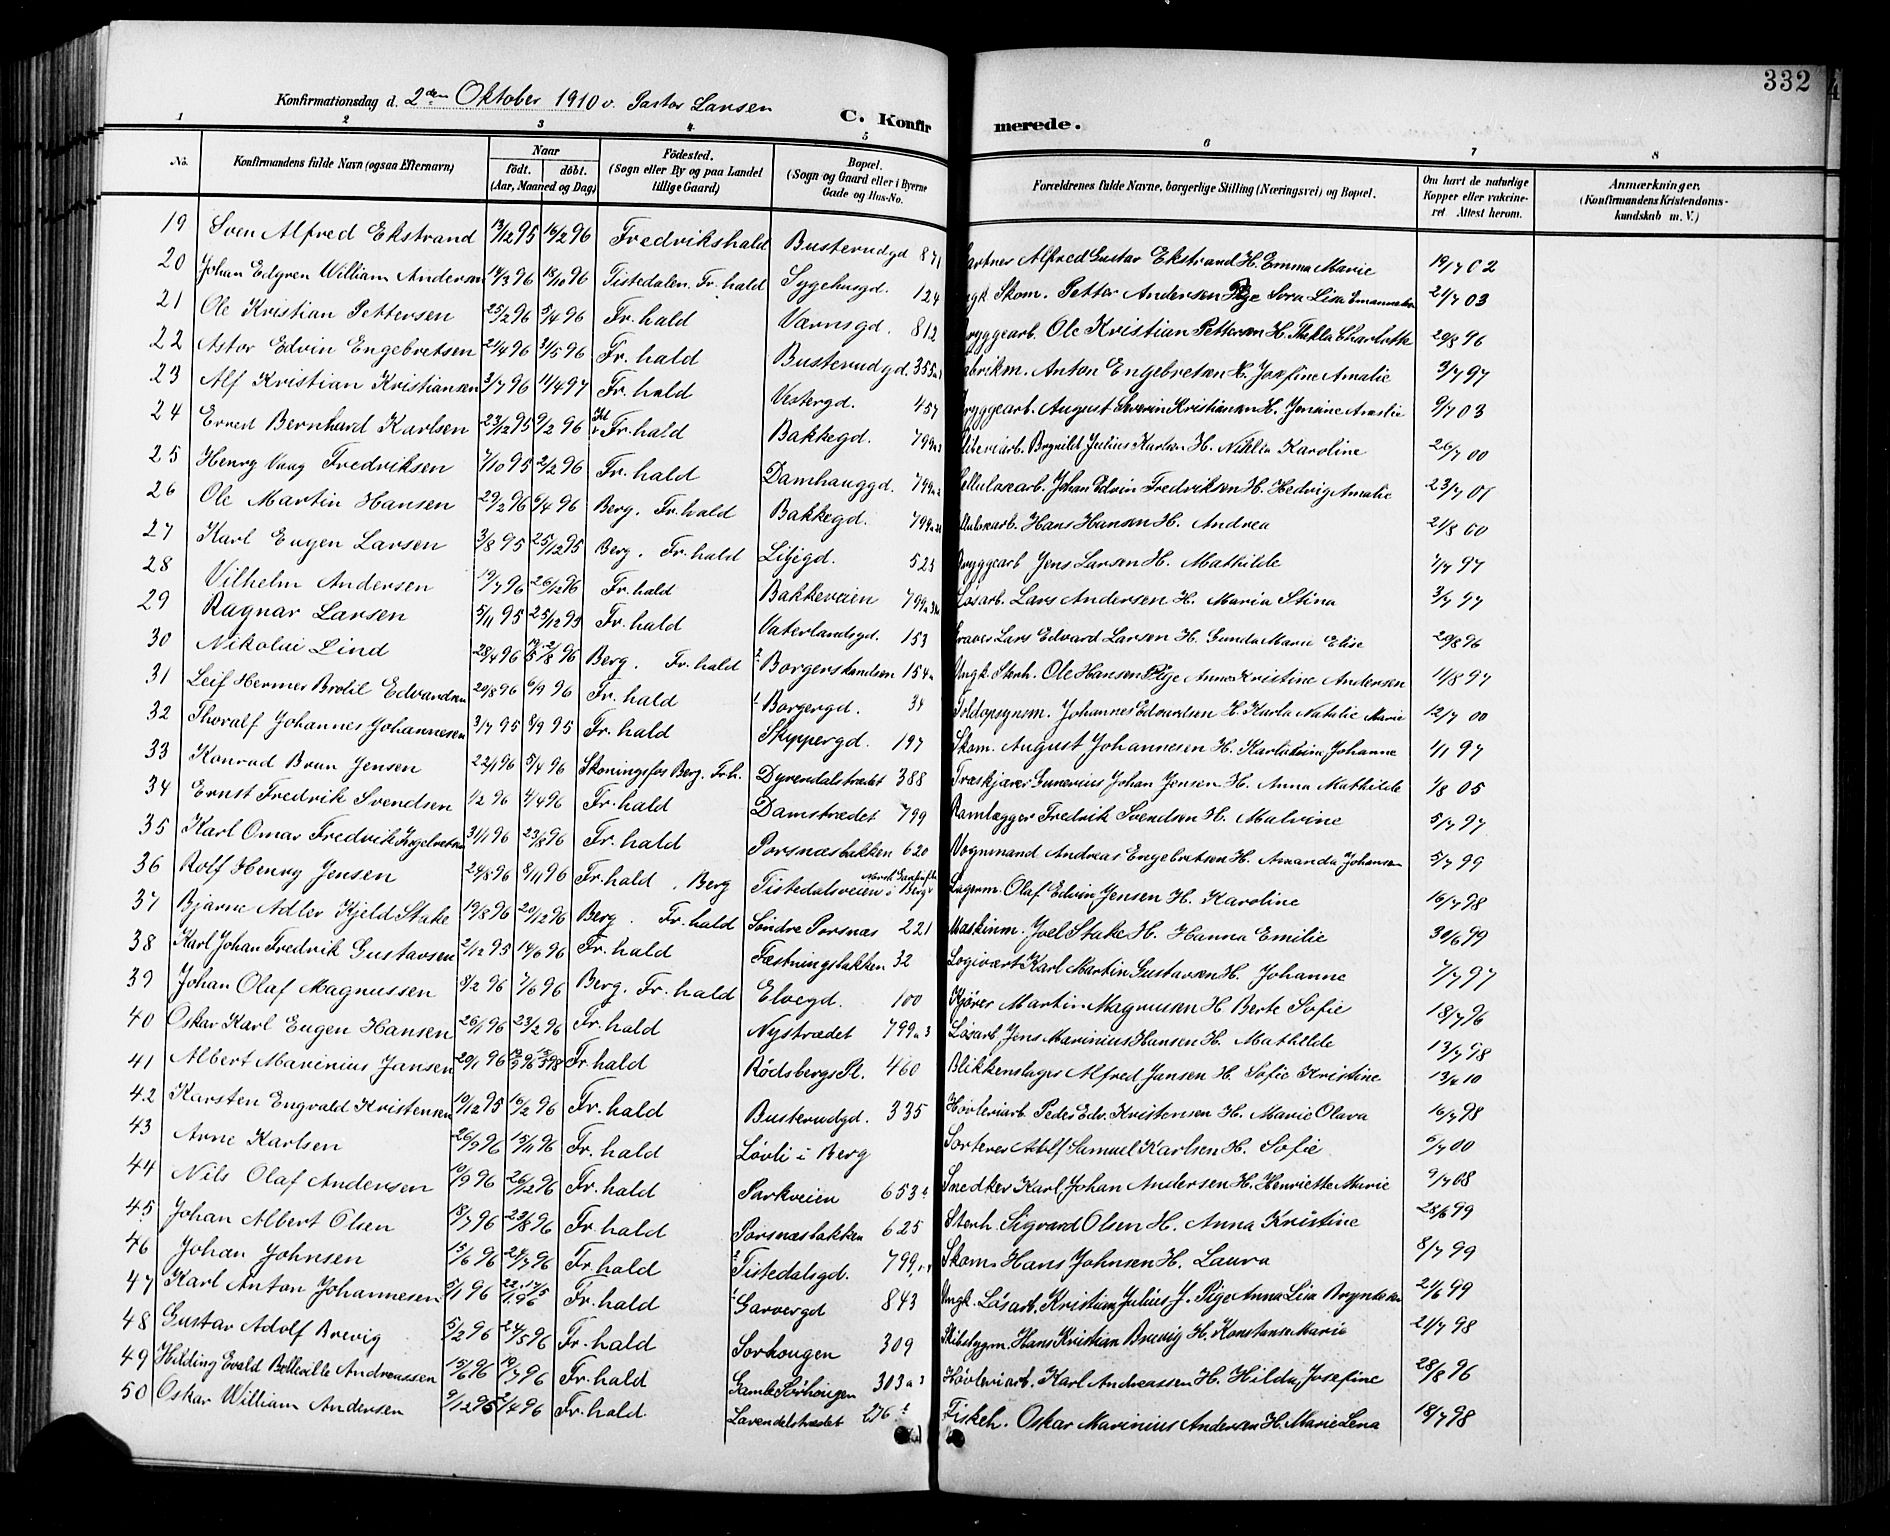 332
Konfirmationsdag d. 2den Oktober 1910 v. Pastor Larsen
C. Konfirmerede.
1 2 3 4 5 6 7 8
No. Konfirmandens fulde Navn (ogsaa Efternavn) Naar födt. döbt. (Aar, Maaned og Dag) Födested. (Sogn eller By og paa Landet tillige Gaard) Bopæl. (Sogn og Gaard eller i Byerne Gade og Hus-No. Forældrenes fulde Navne, borgerlige Stilling (Næringsvei) og Bopæl. Om havt de naturlige Kopper eller vakcineret Attest herom. Anmærkninger. (Konfirmandens Kristendomskundskab m. V.)
19 Sven Alfred Ekstrand 19/12 95 16/2 96 Fredrikshald Busterudgd 871 Alfred Gustav Ekstrand H. Emma Marie 19/7 02
20 Johan Edgren William Andersen 14/3 96 18/10 96 Tistedalen. Fr. hald Sygehusgd. 124 Ungk. Skom. Petter Andersen Pige Sora Lisa 21/7 03
21 Ole Kristian Pettersen 25/2 96 5/4 96 Fr. hald Værnsgd. 812 Bryggearb. Ole Kristian Pettersen H. Thekla Charlotte 20/8 96
22 Astor Edvin Engebretsen 21/4 96 31/5 96 Fr. hald Busterudgd. 355 Fabrikm. Anton Engebretsen H. Josefine Amalie 3/7 97
23 Alf Kristian Kristiansen 3/7 96 11/4 97 Fr. hald Vestergd. 457 Bryggearb. August Severin Kristiansen H. Jenine Amalie 9/7 03
24 Erned Bernhard Karlsen 23/12 95 9/2 96 Fr. hald Bakkegd. 799 Julius Karlsen H. Karoline 26/7 00
25 Henry Vang Fredriksen 7/10 95 2/2 96 Fr. hald Damhauggd. 799 Cellulosearb. Johan Edvin Fredriksen H. Hedvig Amalie 23/7 01
26 Ole Martin Hansen 29/2 96 6/4 96 Berg. Fr. hald Bakkegd. 799 Hans Hansen H. Andrea 21/8 60
27 Karl Eugen Larsen 3/8 95 25/12 95 Berg. Fr. hald Liljegd. 523 Bryggearb Jens Larsen H. Mathilde 1/7 97
28 Vilhelm Andersen 19/7 96 26/12 96 Fr. hald Bakkeveien 799 Løsarb. Lars Andersen H. Maria Stina 3/7 97
29 Ragnar Larsen 5/11 95 25/12 95 Fr. hald Vaterlandsgd. 153 Graver Lars Edvard Larsen H. Gunda Marie Elise 20/8 96
30 Nikolai Lind 28/4 96 2/8 96 Berg. Fr. hald Borgerstranden 154 Ungk. Sterh. Ole Hansen Pige Anna Kristine Andersen 11/8 97
31 Leif Hermes Brotil Edvardsen 20/8 96 6/9 96 Fr. hald Borgergd. 34 Toldopsynsm. Johannes Edvardsen H. Karla Natalie Marie 12/7 00
32 Thoralf Johannes Johannesen 3/7 95 8/9 95 Fr. hald Skippergd. 197 Skom. August Johannesen H. Johanne 1/1 97
33 Konrad Brun Jensen 22/1 96 5/4 96 Skoningsfos Berg. Frh. Dyrendalstrædet 388 Træskjærer Gunerius Johan Jensen H. Anna Mathilde 1/8 05
34 Ernst Fredrik Svendsen 1/2 96 4/4 96 Fr. hald Damstrædet 799 Ramlægger Fredrik Svendsen H. Malvine 5/7 97
35 Karl Omar Fredrik Engebretsen 31/1 96 23/8 96 Fr. hald Porsnæsbakken 620 Vognmand Andreas Engebretsen H. Amanda Johansen 5/7 99
36 Rolf Henry Jensen 24/8 96 8/11 96 Fr. hald, Berg Tistedalsveien i Berg Lagerm. Olaf Edvin Jensen H. Karoline 16/7 98
37 Bjarne Adler Kjeld Stake 19/8 96 20/12 96 Berg. Fr. hald Søndre Porsnæs 221 Maskinm. Joel Stake H. Hanna Emilie 30/6 99
38 Karl Johan Fredrik Gustavsen 2/12 95 14/6 96 Fr. hald Fæstningsbakken 32 Logivært Karl Martin Gustavsen H. Johanne 7/7 97
39 Johan Olaf Magnussen 8/2 96 7/6 96 Berg. Fr. hald Elvegd. 100 Kjører Martin Magnussen H Berte Sofie 18/7 96
40 Oskar Karl Eugen Hansen 26/1 96 23/2 96 Fr. hald Nystrædet 799 a 3 Løsarb Jens Marinius Hansen H. Mathilde 13/7 98
41 Albert Marinius Jansen 20/1 96 Fr. hald Rødsbergs Pl. 460 Blikkenslager Alfred Jansen H. Sofie Kristine 13/6 10
42 Karsten Engvald Kristensen 19/12 95 16/2 96 Fr. hald Busterudgd. 335 Høvleriarb. Peder Edv. Kristensen H. Marie Olava 16/7 98
43 Arne Karlsen 26/9 96 15/11 96 Fr. hald Løvli i Berg Sorterer Adolf Samuel Karlsen H. Sofie 5/7 00
44 Nils Olaf Andersen 19/9 96 26/12 96 Fr. hald Parkveien 653 Snedker Karl Johan Andersen H. Henriette Marie 9/7 08
45 Johan Albert Olsen 18/7 96 23/8 96 Fr. hald Porsnæsbakken 625 Sterh. Sigvard Olsen H. Anna Kristine 28/6 99
46 Johan Johnsen 15/6 96 24/7 96 Fr. hald Tistedalsgd. 799 Skom. Hans Johnsen H. Laura 8/7 99
47 Karl Anton Johannesen 5/1 96 Fr. hald Garvergd 843 Ungk. Løsarb. Kristian Julius J. Pige Anna Lisa 21/6 99
48 Gustav Adolf Brevig 5/2 96 24/5 96 Fr. hald Sorhougen 309 Skibsbygm. Hans Kristian Brevig H. Konstanse Marie 21/7 98
49 Hilding Evald Bolleville Andreassen 15/6 96 19/7 96 Fr. hald Gamle Sørhougen 303 Høvleriarb. Karl Andreassen H. Hilda Josefine 28/8 96
50 Oskar William Andersen 9/12 95 2/4 96 Fr. hald Lavendelstrædet 276 Fiskeh. Oskar Marinius Andersen H. Marie Lena 18/7 98